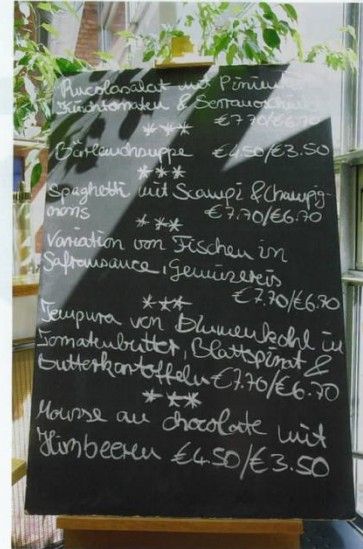 Rucolasalat mit Pinienk
Kirschtomaten & Serranoschin
€7.70/€6.70
***
Bärlauchsuppe €4.50/€3.50
***
Spaghetti mit Scampi & Champig-
nons €7.70/€6.70
***
Variation von Fischen in
Safransauce, Gemüsereis
€7.70/€6.70
***
Tempura von Blumenkohl in
Tomatenbutter, Blattspinat &
Butterkartoffeln €7.70/€6.70
***
Mousse au chocolate mit
Himbeeren €4.50/€3.50